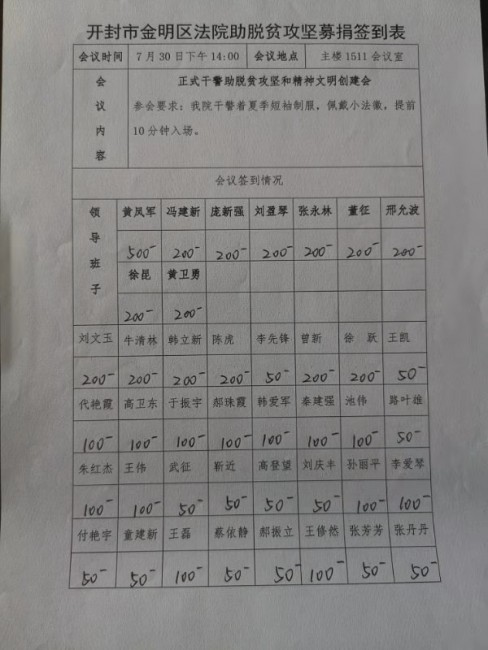 开封市金明区法院助脱贫攻坚募捐签到表
会议时间 7月30日下午14:00 会议地点 主楼1511会议室
会议内容
正式干警助脱贫攻坚和精神文明创建会
参会要求：我院干警着夏季短袖制服，佩戴小法徽，提前
10分钟入场。
会议签到情况
领导班子
黄凤军 冯建新 庞新强 刘盈琴 张永林 董征 邢允波
500- 200- 200- 200- 200- 200- 200-
徐昆 黄卫勇
200- 200-
刘文玉 牛清林 韩立新 陈虎 李先锋 曾新 徐跃 王凯
200- 200- 200- 200- 50- 200- 200- 50-
代艳霞 高卫东 于振宇 郝珠霞 韩爱军 秦建强 池伟 路叶雄
100- 100- 100- 100- 100- 100- 100- 50-
朱红杰 王伟 武征 靳近 高登望 刘庆丰 孙丽平 李爱琴
100- 100- 50- 50- 50- 50- 100- 100-
付艳宇 童建新 王磊 蔡依静 郝振立 王修然 张芳芳 张丹丹
50- 50- 100- 50- 50- 100- 50- 50-